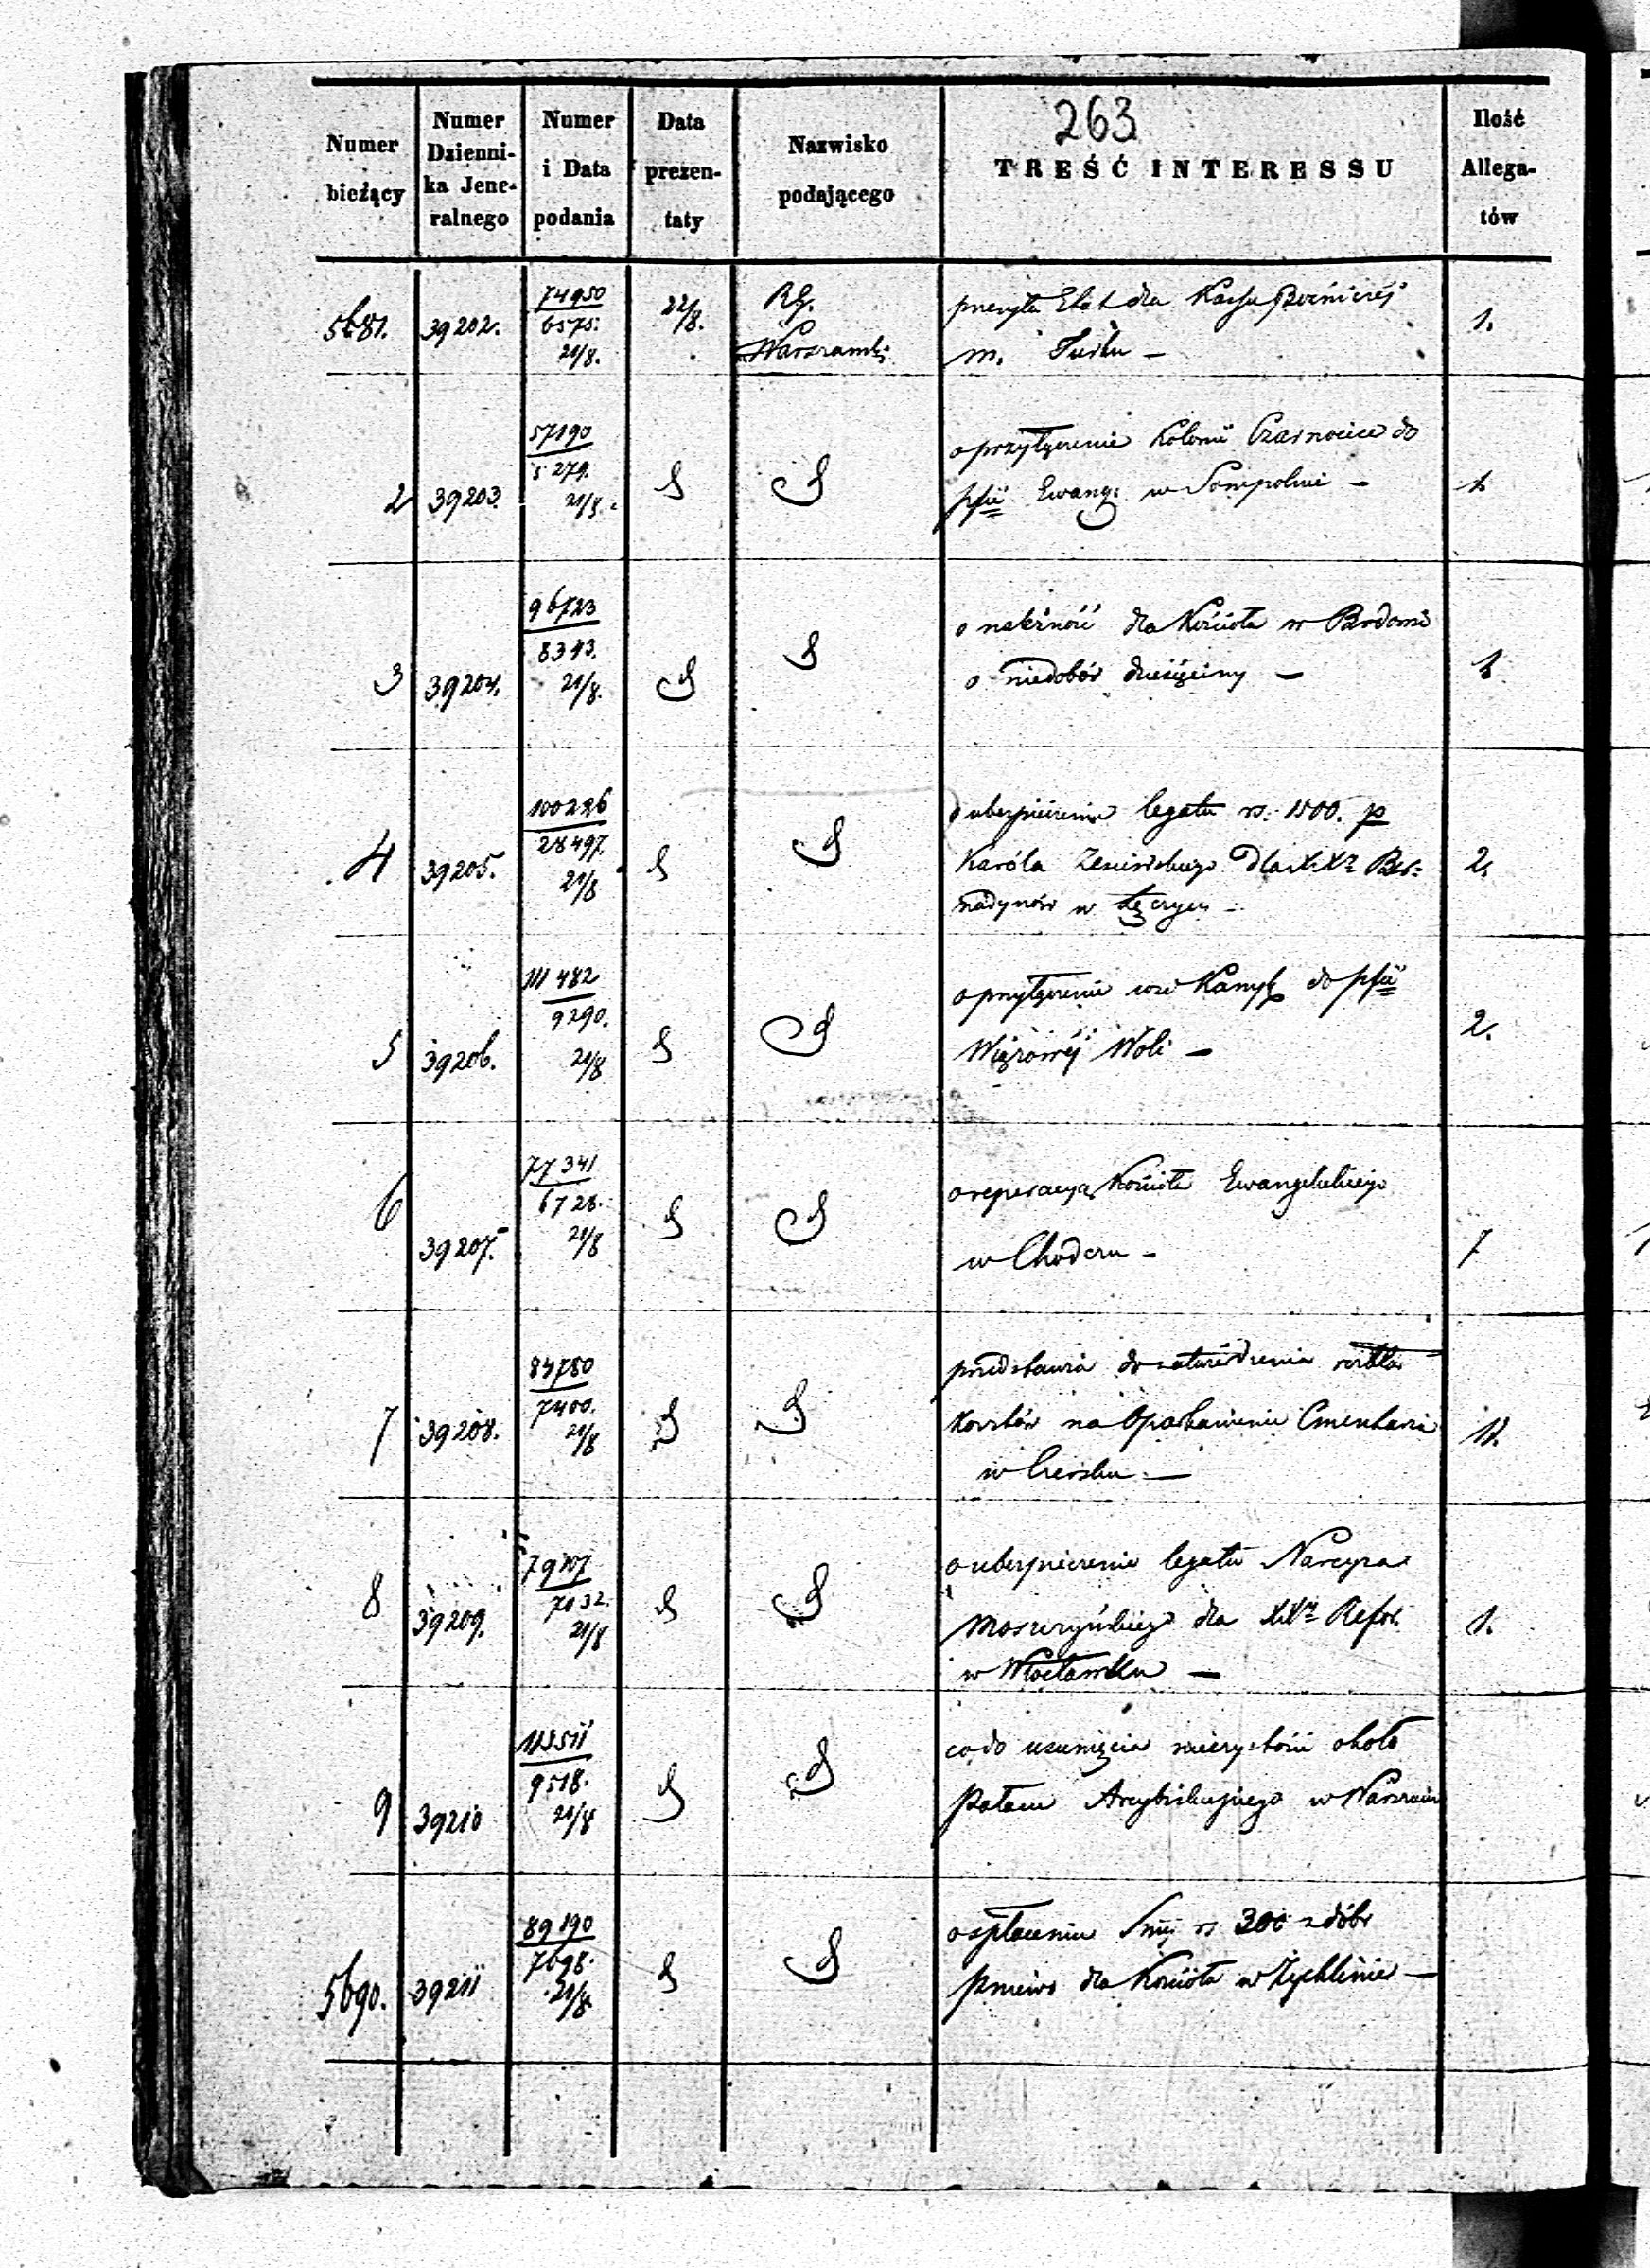 263
Numer bieżący
Numer Dzienni-ka Jene-ralnego
Numer i Data podania
Data prezen-taty
Nazwisko podającego
TREŚĆ INTERESSU
Ilość Allega-tów
5681. 39202. 74950 / 6575. 21/8. 22/8. RG. Warszawski
przesyła Etat dla Kassy Bożniczéj
m. Turku —
1.
2 39203. 57190 / 5279. 21/8.
o przyłączenie Kolonii Czarnocice do
pfii Ewang: w Sompolnie —
1.
3 39204. 96723 / 8393. 21/8.
o należność dla Kościoła w
o niedobór dziesięciny —
1.
4 39205. 100226 / 28497. 21/8
o ubezpieczenie legatu rs. 1500. p
Karóla dla XXr Ber=
nadynów w Łęczycy —
2.
5 39206. 111482 / 9290. 21/8
o przyłączenie wsi Kamyk do pfii
Wiązowéj Woli —
2.
6 39207. 77341 / 6728. 21/8
o reperacyą Kościoła Ewangelickiego
w Chodczu —
7
7 39208. 84780 / 7400. 21/8
przedstawia do zatwierdzenia
kosztów na Oparkanienie Cmentarza
w Czersku —
11.
8 39209. 79707 / 7032. 21/8
o ubezpieczenie legatu Narcyza
Moszczyńskiego dla XXr Refor.
w Włocławku —
1.
9 39210 113511 / 9518. 21/8
co do usunięcia nieczystości około
Pałacu Arcybiskupiego w Warszawie
5690. 39211 89190 / 7698. 21/8.
o spłacenie Summy rs 300 z dóbr
Pniewo dla Kościoła w Żychlinie —